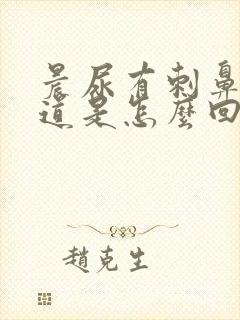 晨尿有刺鼻
道是怎麼回
趙克生